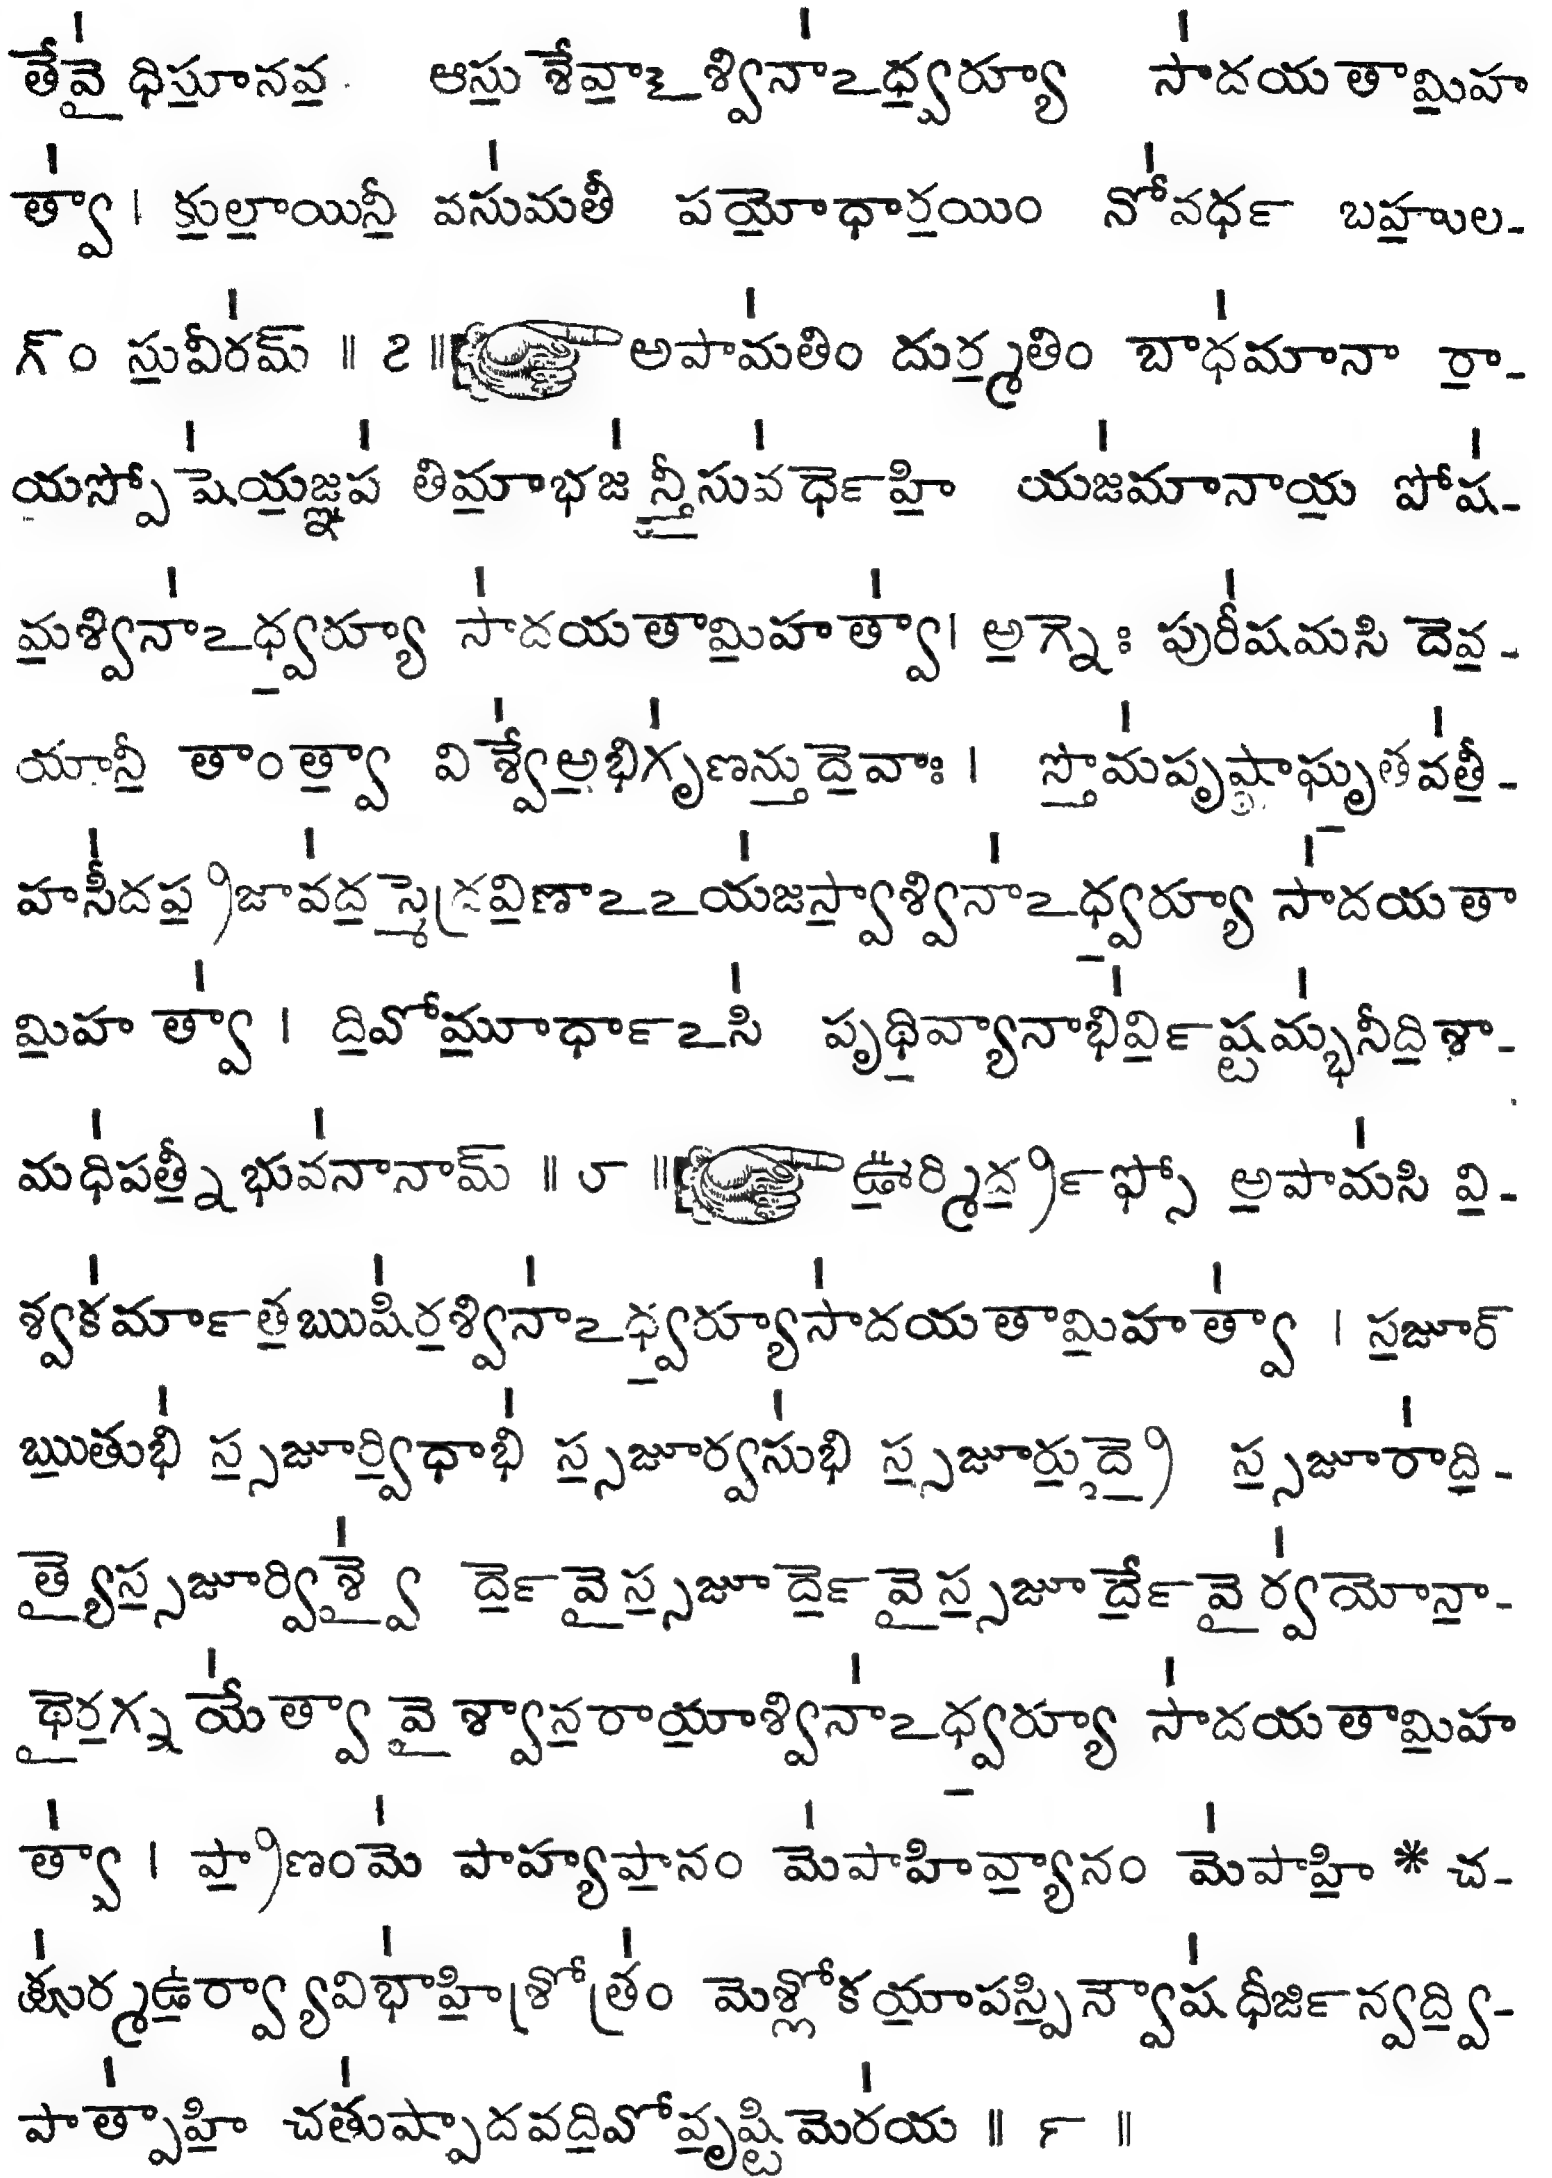 తేవై ధిస్తూనవ ఆస్తు శేవాఽఽశ్వినాఽధ్వర్యూ సాదయతామిహ
త్వా। కులాయినీ వసుమతీ పయోధారయిం నోవర్ధ బహుల-
గ్ం సువీరమ్ ॥ ౭ ॥ అపామతిం దుర్మతిం బాధమానా రా-
యస్పోషెయజ్ఞప తిమాభజ న్తీసువర్ధెహి యజమానాయ పోష-
మశ్వినాఽధ్వర్యూ సాదయతామిహత్వా। అగ్నెః పురీషమసి దెవ-
యానీ తాంత్వా విశ్వేఅభిగృణన్తుదెవాః। స్తోమపృష్ఠాఘృతవతీ-
హసీదప్రజావదస్మెద్రవిణాఽఽయజస్వాశ్వినాఽధ్వర్యూ సాదయతా
మిహ త్వా। దివోమూర్ధాఽసి పృథివ్యానాభిర్విష్టమ్భనీదిశా-
మధిపత్నీ భువనానామ్ ॥ ౮ ॥ ఊర్మిర్ద్రఫ్సో అపామసి వి-
శ్వకర్మాతఋషిరశ్వినాఽధ్వర్యూసాదయతామిహత్వా । సజూర్
ఋతుభి స్సజూర్విధాభి స్సజూర్వసుభి స్సజూర్రుద్రై స్సజూరాది-
త్యైస్సజూర్విశ్వై ర్దెవైస్సజూ ర్దెవైస్సజూ ర్దేవైర్వయోనా-
థైరగ్నయేత్వా వైశ్వానరాయాశ్వినాఽధ్వర్యూ సాదయతామిహ
త్వా। ప్రాణంమె పాహ్యపానం మెపాహివ్యానం మెపాహి * చ-
క్షుర్మఉర్వ్యావిభాహిశ్రోత్రం మెశ్లోకయాపస్పిన్వౌషధీర్జిన్వద్వి-
పాత్పాహి చతుష్పాదవదివోవృష్టిమెరయ ॥ ౯ ॥